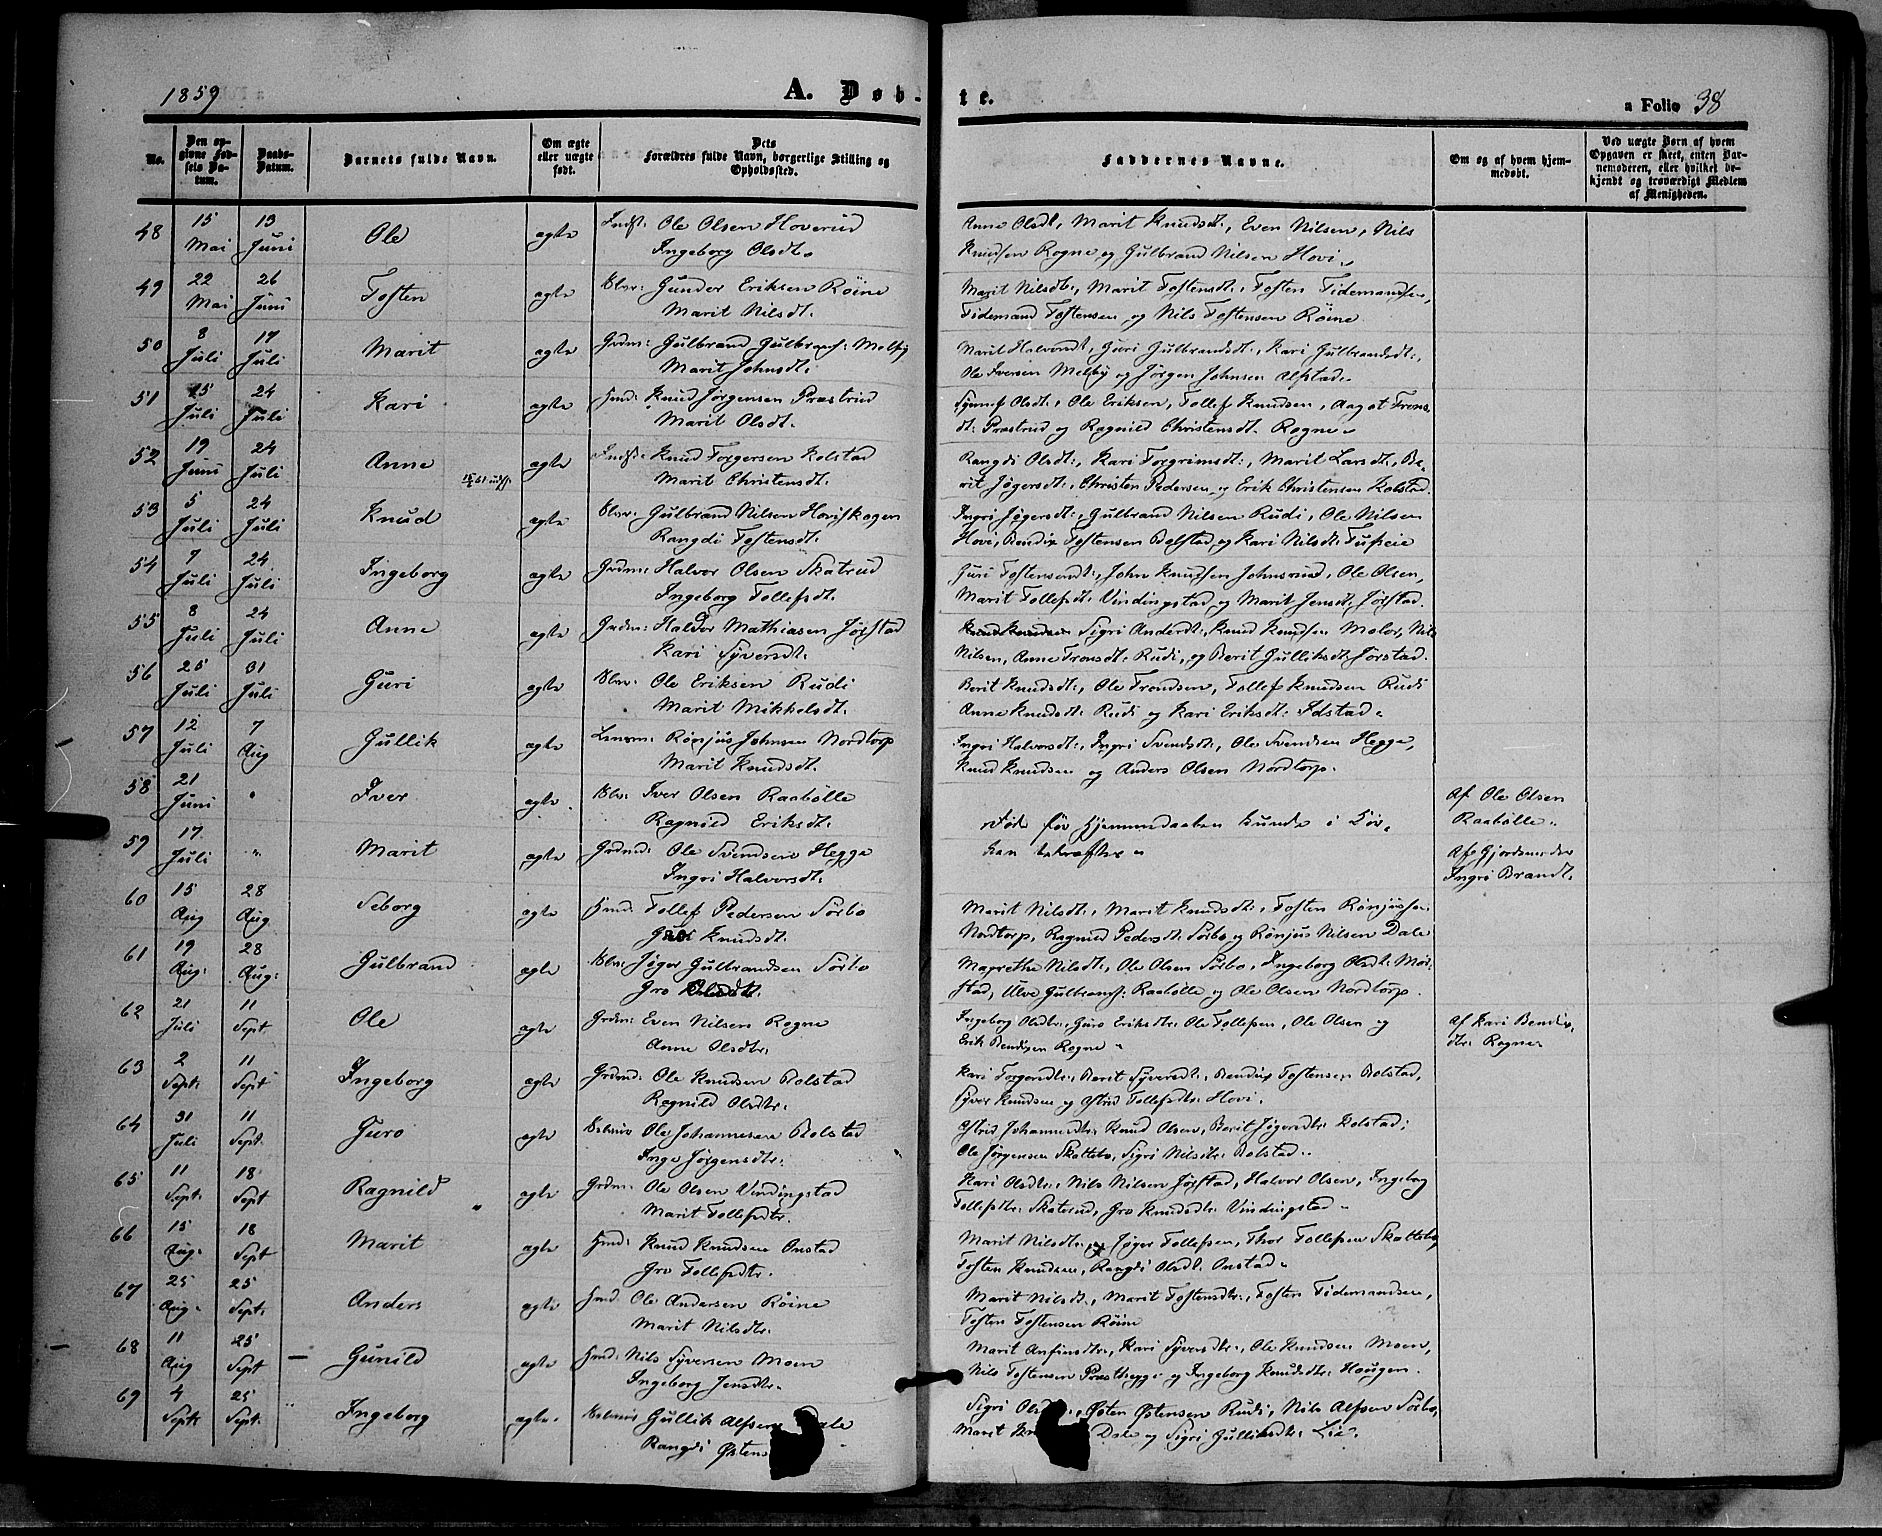 1859
A. Døb-
te.
a Folio 38
No.
Den op-
givne Fød-
sels Da-
tum.
Daabs-
Datum.
Barnets fulde Navn.
Om ægte
eller uægte
født.
Dets
Forældres fulde Navn, borgerlige Stilling og
Opholdssted.
Faddernes Navne.
Om og af hvem hjem-
medøbt.
Ved uægte Børn af hvem
Opgaven er skeet, enten Bar-
nemoderen, eller hvilket be-
kjendt og troværdigt Medlem
af Menigheden.
48 15 Mai 13 Juni Ole ægte Indst: Ole Olsen Hoverud
Ingeborg Olsdt.
Anne Olsdt., Marit Knudsdt., Even Nilsen, Nils
Knudsen Rogne og Gulbrand Nilsen Hovi
49 22 Mai 26 Juni Tosten ægte Gunder Eriksen Röine
Marit Nilsdt.
Marit Nilsdt:, Marit Tostensdt:, Tosten Tidemandsen,
Tidemand Tostensen og Nils Tostensen Röine
50 8 Juli 17 Juli Marit ægte Grdm: Gulbrand Gulbrans: Melby
Marit Johnsdt.
Marit Halvordt., Guri Gulbrandsdt., Kari Gulbrandsdt.,
Ole Iversen Melby og Jörgen Johnsen Alfstad
51 15 Juli 24 Juli Kari ægte Hmd: Knud Jörgensen Præstrud
Marit Olsdt.
Olsdt:, Ole Eriksen, Tollef Knudsen, Aagot Trons-
dt: Præstrud og Ragnild Christensdt. Rogne
52 19 Juni 24 Juli Anne ægte Indst: Knud Torgersen Kolstad
Marit Christensdt.
Rangdi Olsdt:, Kari Torgrimsdt:, Marit Larsdt:, Be-
rit Jögersdt:, Christen Pedersen og Erik Christensen Kolstad.
53 5 Juli 24 Juli Knud ægte Gulbrand Nilsen Hoviskogen
Rangdi Tostensdt.
Ingri Jögersdt:, Gulbrand Nilsen Rudi, Ole Nilsen
Hovi, Bendix Tostensen Bolstad og Kari Nilsdt:
54 7 Juli 24 Juli Ingeborg ægte Grdm: Halvor Olsen Skatrud
Ingeborg Tollefsdt.
Guri Tostensendt:, John Knudsen Johnsrud, Ole Olsen,
Marit Tollefsdt: Vindingstad og Marit Jensdt: Jörstad.
55 8 Juli 24 Juli Anne ægte Grdm: Halvor Mathiasen Jörstad
Kari Syversdt:
Sigri Andersdt:, Knud Knudsen Nils
Nilsen, Anne Tronsdt: Rudi, og Berit Gulliksdt: Jörstad.
56 25 Juli 31 Juli Guri ægte Ole Eriksen Rudi
Marit Mikkelsdt.
Berit Knudsdt:, Ole Trondsen, Tollef Knudsen Rudi
Anne Knudsdt: Rudi og Kari Eriksdt: Idstad
57 12 Juli 7 Aug Gullik ægte Rönjus Johnsen Nordtorp
Marit Knudsdt.
Ingri Halvorsdt:, Ingri Svendsdt:, Ole Svendsen Hegge,
Knud Knudsen og Anders Olsen Nordtorp.
58 21 Juni " Iver ægte Iver Olsen Raabölle
Ragnild Eriksdt:
Död för Hjemmedaaben kunde i Kir-
Af Ole Olsen
Raabölle
59 17 Juli " Marit ægte Grdmd: Ole Svendsen Hegge
Ingri Halvorsdt:
ken bekræftes
Af Gjordemoder
Ingri Brandt.
60 15 Aug 28 Aug Seborg ægte Hmd: Tollef Pedersen Sörbo
Knudsdt.
Marit Nilsdt:, Marit Knudsdt:, Tosten Rönjussen
Nordtorp, Ragnild Pedersdt: Sörbo og Rönjus Nilsen Dale
61 19 Aug: 28 Aug: Gulbrand ægte Jöger Gulbrandsen Sörbo
Gro Olsdt.
Magrethe Nilsdt:, Ole Olsen Sörbo, Ingeborg Olsdt:
stad, Ulve Gulbrans: Raabölle og Ole Olsen Nordtorp.
62 21 Juli 11 Sept Ole ægte Grdm: Even Nilsen Rogne
Anne Olsdtr:
Ingeborg Olsdtr:, Guro Eriksdtr: Ole Tollefsen, Ole Olsen og
Erik Bendixen Rogne
Af Kari Bendix-
dtr: Rogne
63 2 Sept: 11 Sept Ingeborg ægte Grdmd: Ole Knudsen Bolstad
Ragnild Olsdtr:
Kari Torgersdtr:, Berit Syversdt:, Bendix Tostensen Bolstad,
Syver Knudsen og Astrid Tollefsdtr: Hovi.
64 31 Juli 11 Sept: Guro ægte Ole Johannesen Bolstad
Inge Jörgensdtr:
Astrid Johannesdtr: Knud Olsen, Berit Jögersdtr: Kolstad;
Ole Jörgensen Skattebo, Sigri Nilsdtr: Bolstad
65 11 Sept: 18 Sept Ragnild ægte Grdm: Ole Olsen Vindingstad
Marit Tollefsdtr.
Kari Olsdtr:, Nils Nilsen Jörstad, Halvor Olsen, Ingeborg
Tollefsdtr: Skaterud, Gro Knudsdtr: Vindingstad
66 15 Aug: 18 Sept Marit ægte Hmd: Knud Knudsen Onstad
Gro Tollefsdtr.
Marit Nilsdtr:, Jöger Tollefsen, Thor Tollefsen Skattebo,
Tosten Knudsen, Rangdi Olsdt: Onstad
67 25 Aug 25 Sept: Anders ægte Hmd: Ole Andersen Röine
Marit Nilsdtr.
Marit Nilsdt:, Marit Tostensdtr:, Tosten Tidemandsen,
Tosten Tostensen Röine
68 11 Aug 25 Sept Gunild ægte Hmd: Nils Syversen Moen
Ingeborg Jensdtr.
Marit Anfinsdtr:, Kari Syversdtr:, Ole Knudsen Moen,
Nils Tostensen Præsthegge og Ingeborg Knudsdtr: Haugen
69 4 Sept: 25 Sept. Ingeborg ægte Gullik Alfsen Dale
Rangdi Östens
Sigri Östen Östensen Rudi, Nils Alfsen Sörbo,
Marit Dale og Sigri Gulliksdtr: Lie